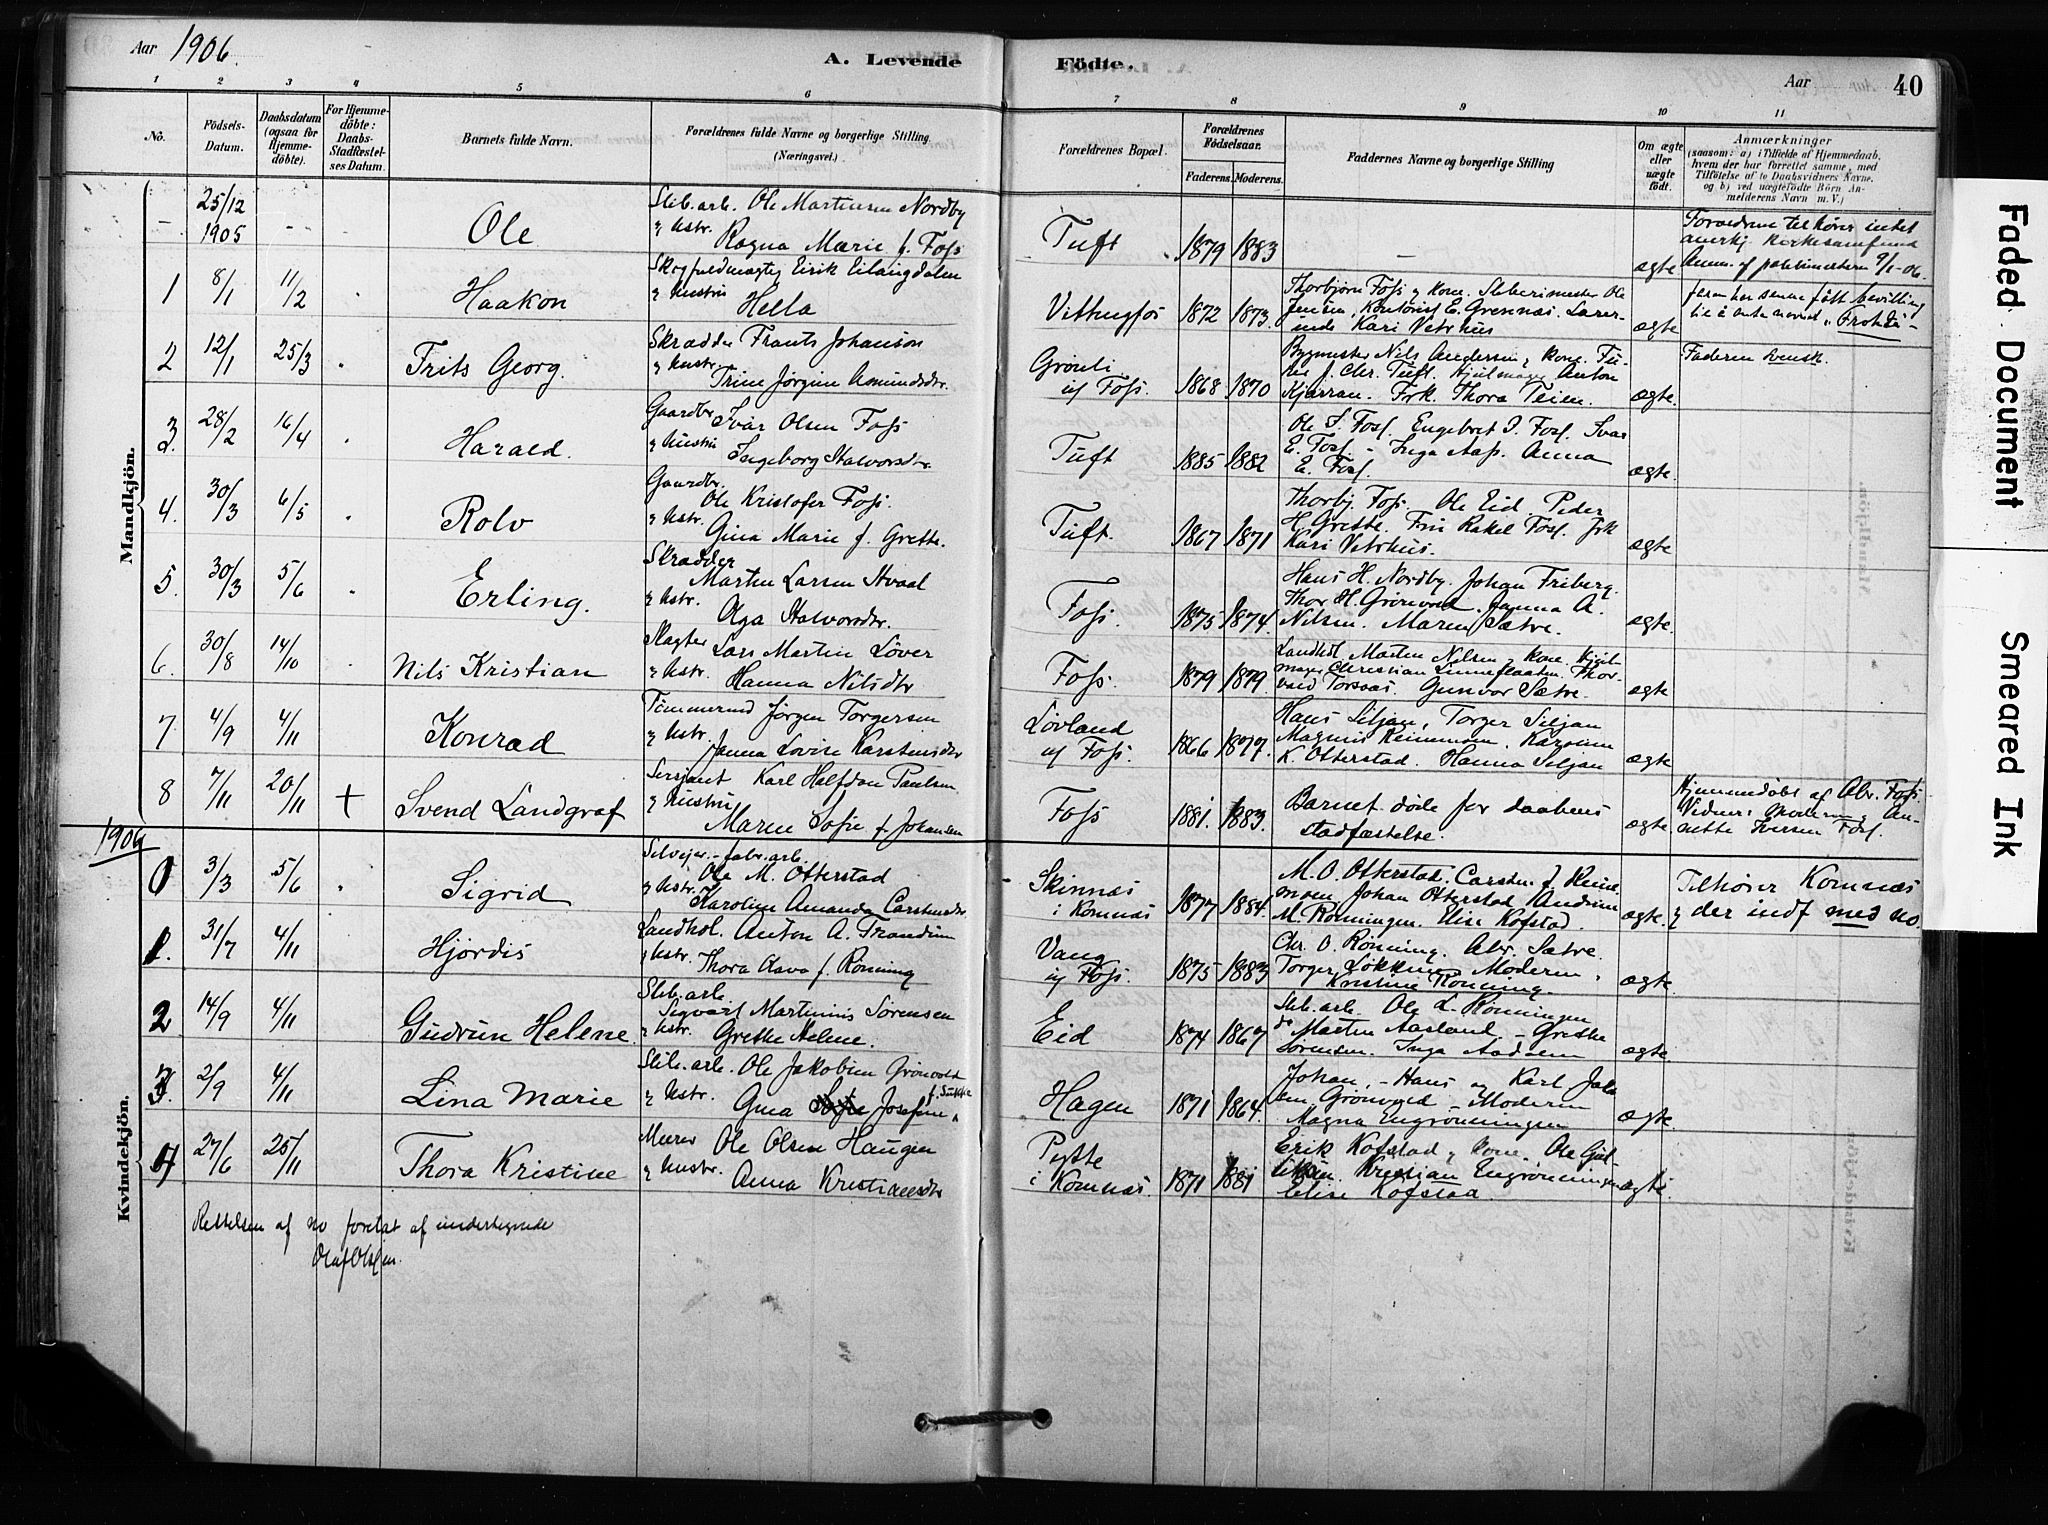 Aar 1906.
A. Levende Födte.
Aar
40
1 2 3 4 5 6 7 8 9 10 11
No.
Födsels-Datum.
Daabsdatum (ogsaa for Hjemmedöbte).
For Hjemmedöbte: Daabs-Stadfæstelses Datum.
Barnets fulde Navn.
Forældrenes fulde Navne og borgerlige Stilling. (Næringsvei.)
Forældrenes Bopæl.
Forældrenes Födselsaar.
Faderens. Moderens.
Faddernes Navne og borgerlige Stilling
Om ægte eller uægte födt.
Anmærkninger
(saasom: a) i Tilfælde af Hjemmedaab, hvem der har forrettet samme, med Tilföielse af to Daabsvidners Navne, og b) ved uægtefödte Börn Anmelderens Navn m. V.)
Mandkjön.
– 25/12 1905 – – Ole
Slib.arb. Ole Martinsen Nordby
Hstr. Ragna Marie f. Foss
Tuft 1879 1883 – ægte
Forældrene tilhører intet
anerkj. kirkesamfund
Anm. af politimesteren 9/1-06.
1 8/1 11/2 Haakon
Skogfuldmægtig Eirik
Hustru Hella
Vittingfos 1872 1873.
Thorbjørn Foss kone. Sliberimester Ole
Jensen, Kontorist E. Gresnæs.
Kari Vetrhus
ægte
2 12/1 25/3 Frits Georg.
Skrædder Frants Johanson
Hustr. Trine Jørgine Amundsdtr.
Grönli
Foss. 1868 1870
Bygmester Nils Andersen, kone.
f. Chr. Tuft. Hjulmager Anton
Kjærran. Frk. Thora Teien.
ægte.
Faderen svensk.
3. 28/2 16/4 Harald.
Gaardbr. Ivar Olsen Foss
Hustru Ingeborg Halvorsdtr.
Tuft 1885 1882
Ole I. Foss. Engebret I. Foss. Ivar
E. Foss – Inga Aass. Anna
E. Foss.
ægte
4. 30/3 6/5 Rolv
Gaardbr. Ole Kristofer Foss.
Hstr. Gina Marie f. Grette.
Tuft. 1867 1871
Thorbj. Foss. Ole Eid. Peder
H. Grette. Fru Rakel Foss. Frk
Kari Vetrhus.
ægte
5. 30/3 5/6 Erling.
Skrædder Martin Larsen Hvaal
Hstr. Olga Halvorsdtr.
Foss. 1875 1874.
Hans H. Nordby. Johan Friberg.
Thor H. Grönvold. Janna A.
Nilsen. Maren Sætre.
ægte.
6. 30/8 14/10 Nils Kristian
Slagter Lars Martin Löver
Hstr. Hanna Nilsdtr
Foss. 1879 1879.
Landhdl Martin Nilsen, kone. Hjulmager
Christian Sunneflaaten. Thorvald
Torsnæs. Gunvor Sætre.
ægte
7 4/9 4/11 Konrad
Tömmermd Jørgen Torgersen
Hstr. Janna Lovise Karstensdtr
Lövland
Foss. 1866 1877.
Hans Siljan, Torger Siljan
Magnus Reinemoen. Karoline
K. Otterstad. Hanna Siljan
ægte
8 7/11 20/11 + Svend Landgraf
Sersjant Karl Halfdan Paulsen
Hustru Maren Sofie f. Johansen
Foss 1881. 1883.
Barnet døde før daabens
stadfæstelse.
ægte
Hjemmedöbt af Abr. Foss.
Vidner: Moderen, Annette
Iversen Foss.
1906
Kvindekjön.
0 3/3 5/6 Sigrid
Selveier-fabr.arb. Ole M. Otterstad
Hstr. Karoline Amanda Carstensdtr
Skinnæs
i Komnæs 1877 1884.
M. O. Otterstad. Carsten J. Reinemoen
Johan Otterstad
M. Rönningen. Elise Kofstad.
ægte.
Tilhører Komnæs
der indf med no.
1. 31/7 4/11 Hjördis
Landhdl. Anton A. Trandum
Hstr. Thora Olava f. Rönning
Vang
Foss. 1875 1883
Chr. O. Rönning. Abr. Sætre.
Torger Lökken, Moderen,
Kristine Rönning.
ægte.
2 14/9 4/11 Gudrun Helene.
Slib.arb. Sigvart Martinius Sörensen
Hstr. Grethe Helene.
Eid 1874 1867
Slib.arb. Ole L. Rönningen
do Martin Aasland – Grethe
Sörensen. Inga
ægte
3. 2/9 4/11 Lina Marie
Slib.arb. Ole Jakobsen Grönvold
Hstr. Gina Josefine
Hagen 1871 1864.
Johan, – Hans og Karl
Grönvold – Moderen
Magna Engrönningen
ægte.
4 27/6 25/11 Thora Kristine
Murer Ole Olsen Haugen
Hustr. Anna Kristiansdtr
Pytte
i Komnæs. 1871 1881
Erik Kofstad, kone. Ole
Kristian Engrönningen
Elise Kofstad.
ægte
Rettelsen af no foretat af undertegnede
Olaf Olsen.
Faded Document
Smeared Ink